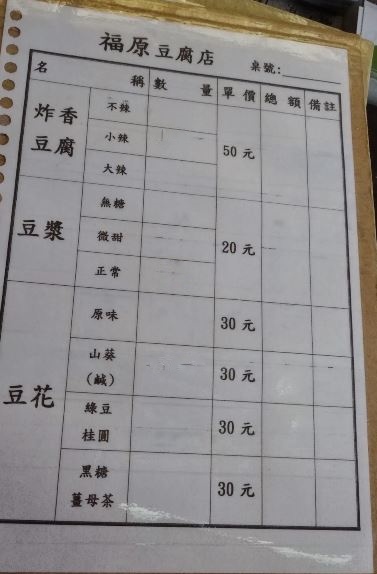 福原豆腐店
桌號:
名稱 數量 單價 總額 備註
炸香豆腐
不辣
小辣
大辣
50元
豆漿
無糖
微甜
正常
20元
豆花
原味
30元
山葵
(鹹)
30元
綠豆
桂圓
30元
黑糖
薑母茶
30元